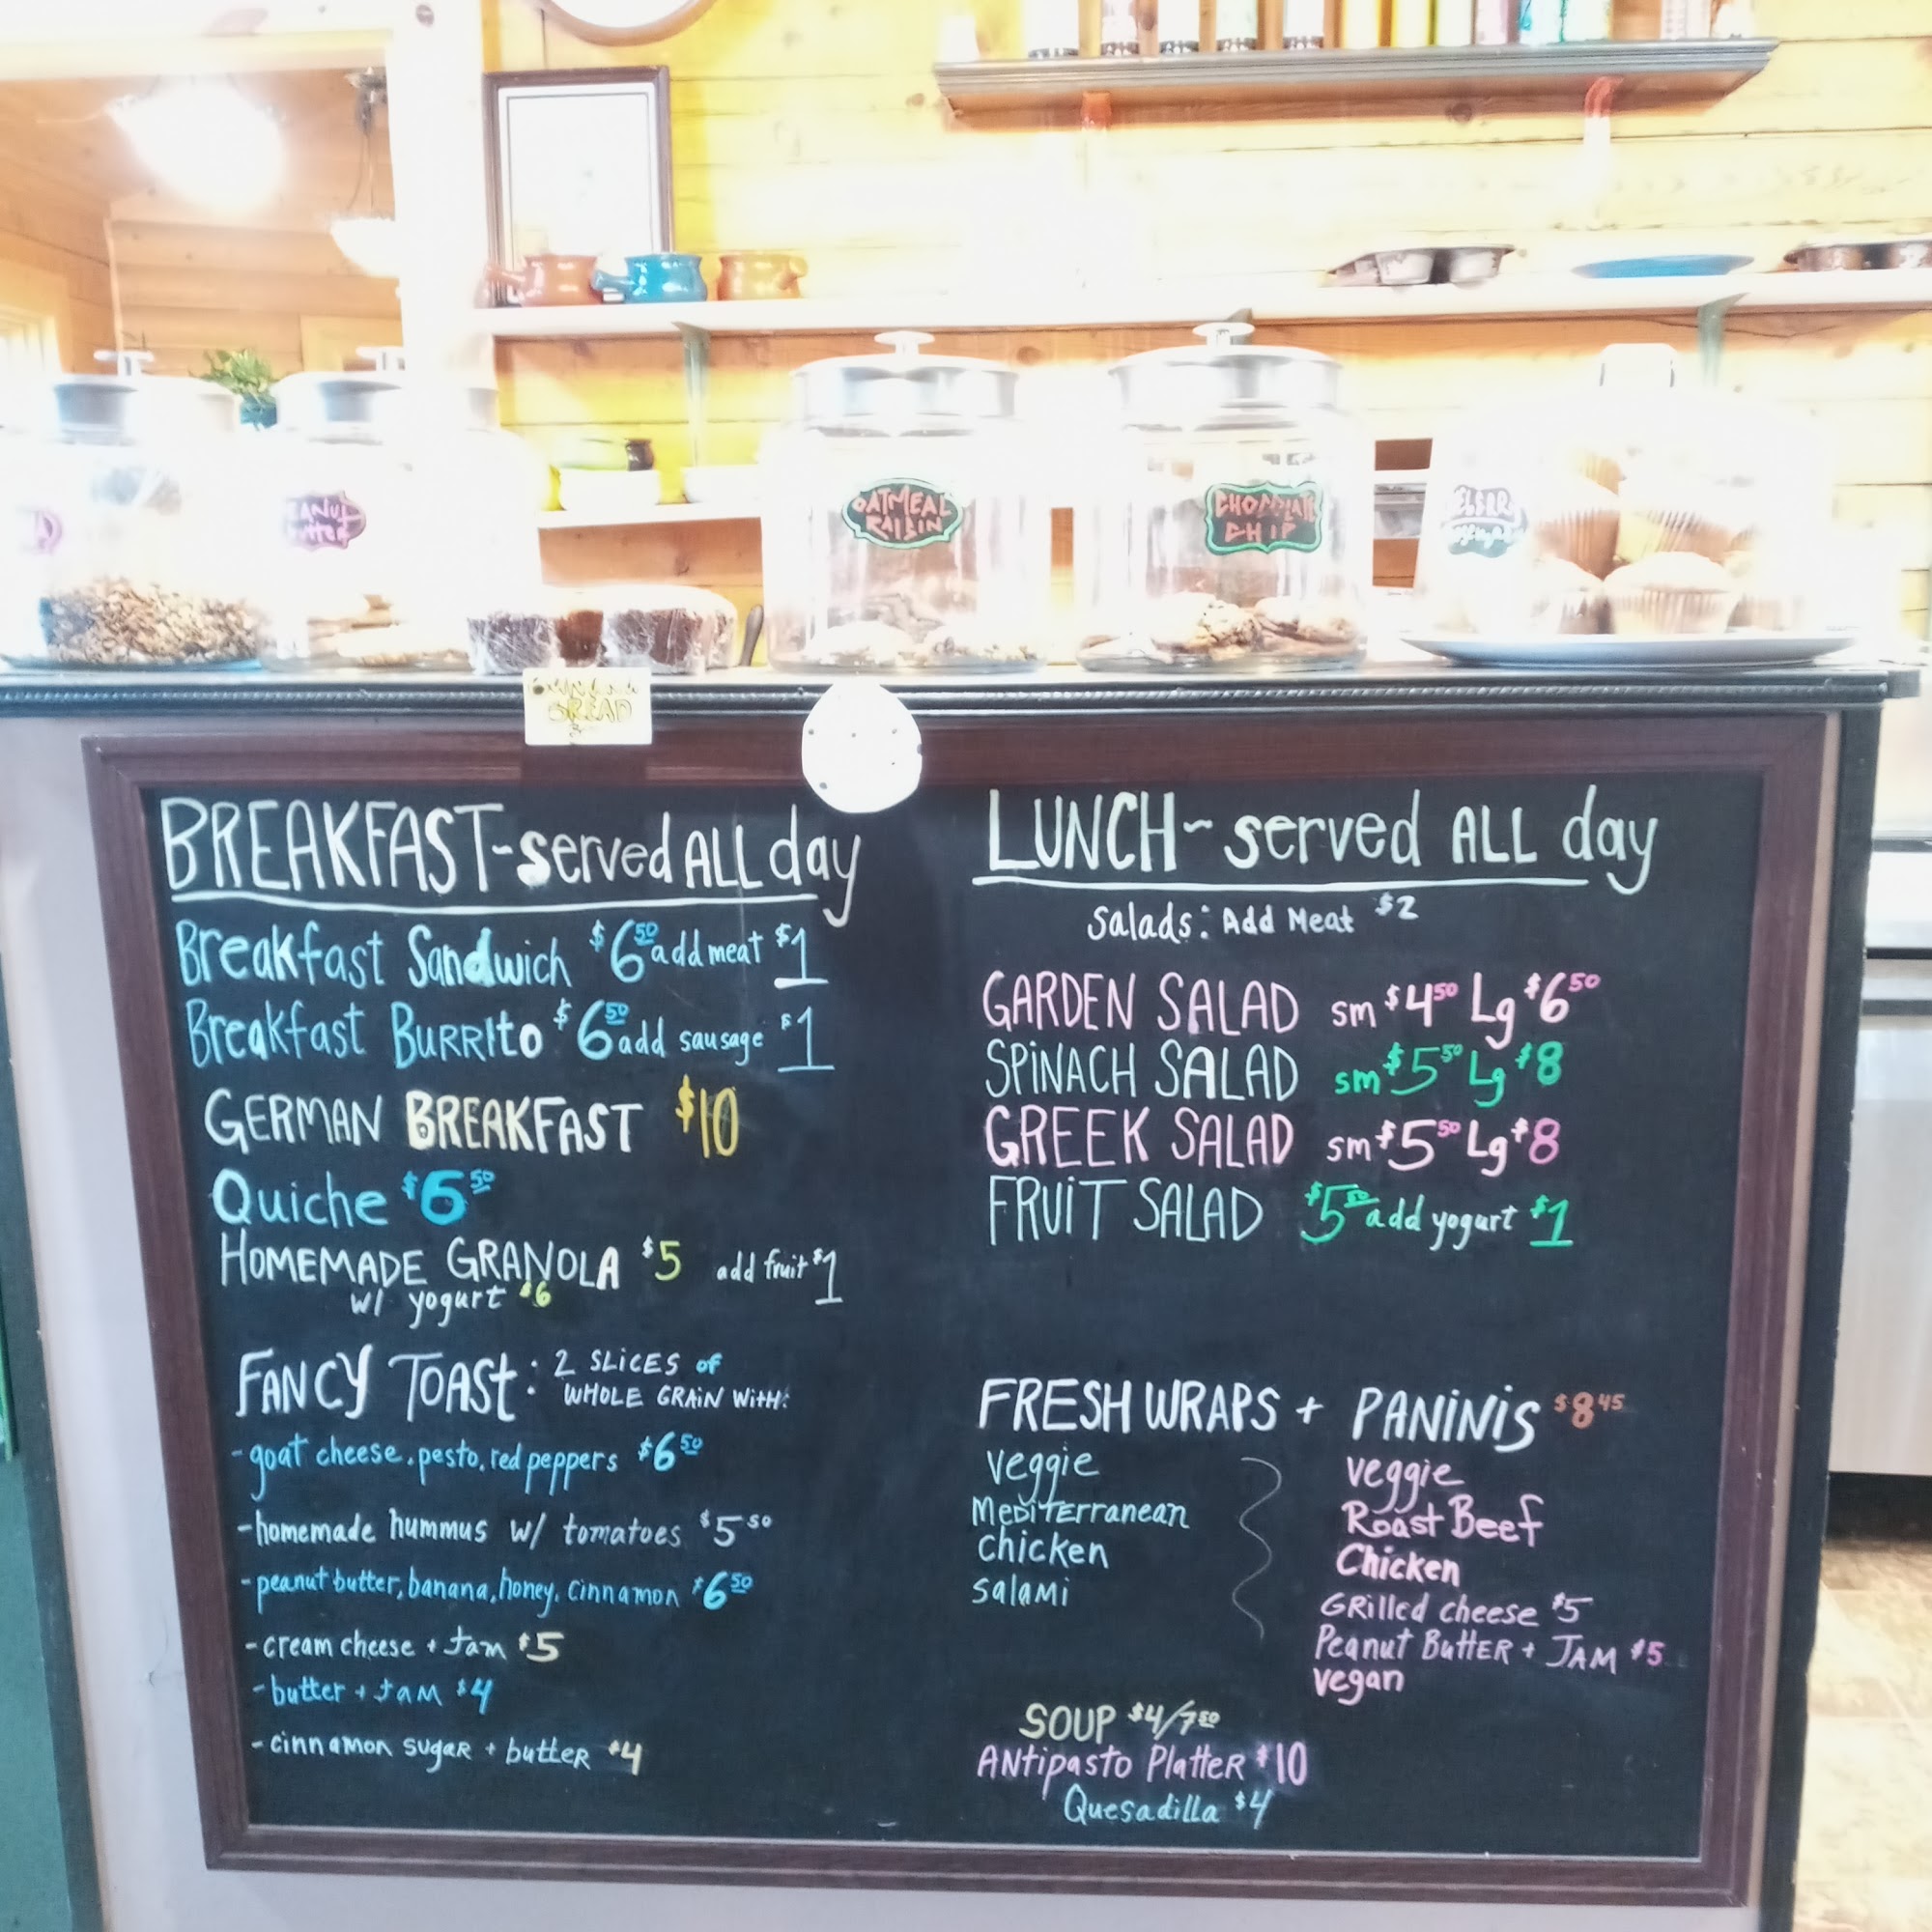 OATMEAL
RAISIN
CHOCOLATE
CHIP
BREAD
BREAKFAST-served ALL day
Breakfast Sandwich $6 50 add meat $1
Breakfast BURRITO $6 50 add sausage $1
GERMAN BREAKFAST $10
Quiche $6 50
HOMEMADE GRANOLA $5 add fruit $1
w/ yogurt $6
FANCY TOAST: 2 SLICES of
WHOLE GRAIN WITH:
- goat cheese, pesto, red peppers $6 50
- homemade hummus w/ tomatoes $5 50
- peanut butter, banana, honey, cinnamon $6 50
- cream cheese + Jam $5
- butter + JAM $4
- cinnamon sugar + butter $4
LUNCH~ served ALL day
Salads: Add Meat $2
GARDEN SALAD sm $4 50 Lg $6 50
SPINACH SALAD sm $5 50 Lg $8
GREEK SALAD sm $5 50 Lg $8
FRUIT SALAD $5 50 add yogurt $1
FRESH WRAPS + PANINIS $8 45
veggie
MEDITERRanean
chicken
salami
veggie
Roast Beef
Chicken
GRilled cheese $5
Peanut BuTTER + JAM $5
vegan
SOUP $4/7 50
ANtipasto PlatteR $10
Quesadilla $4